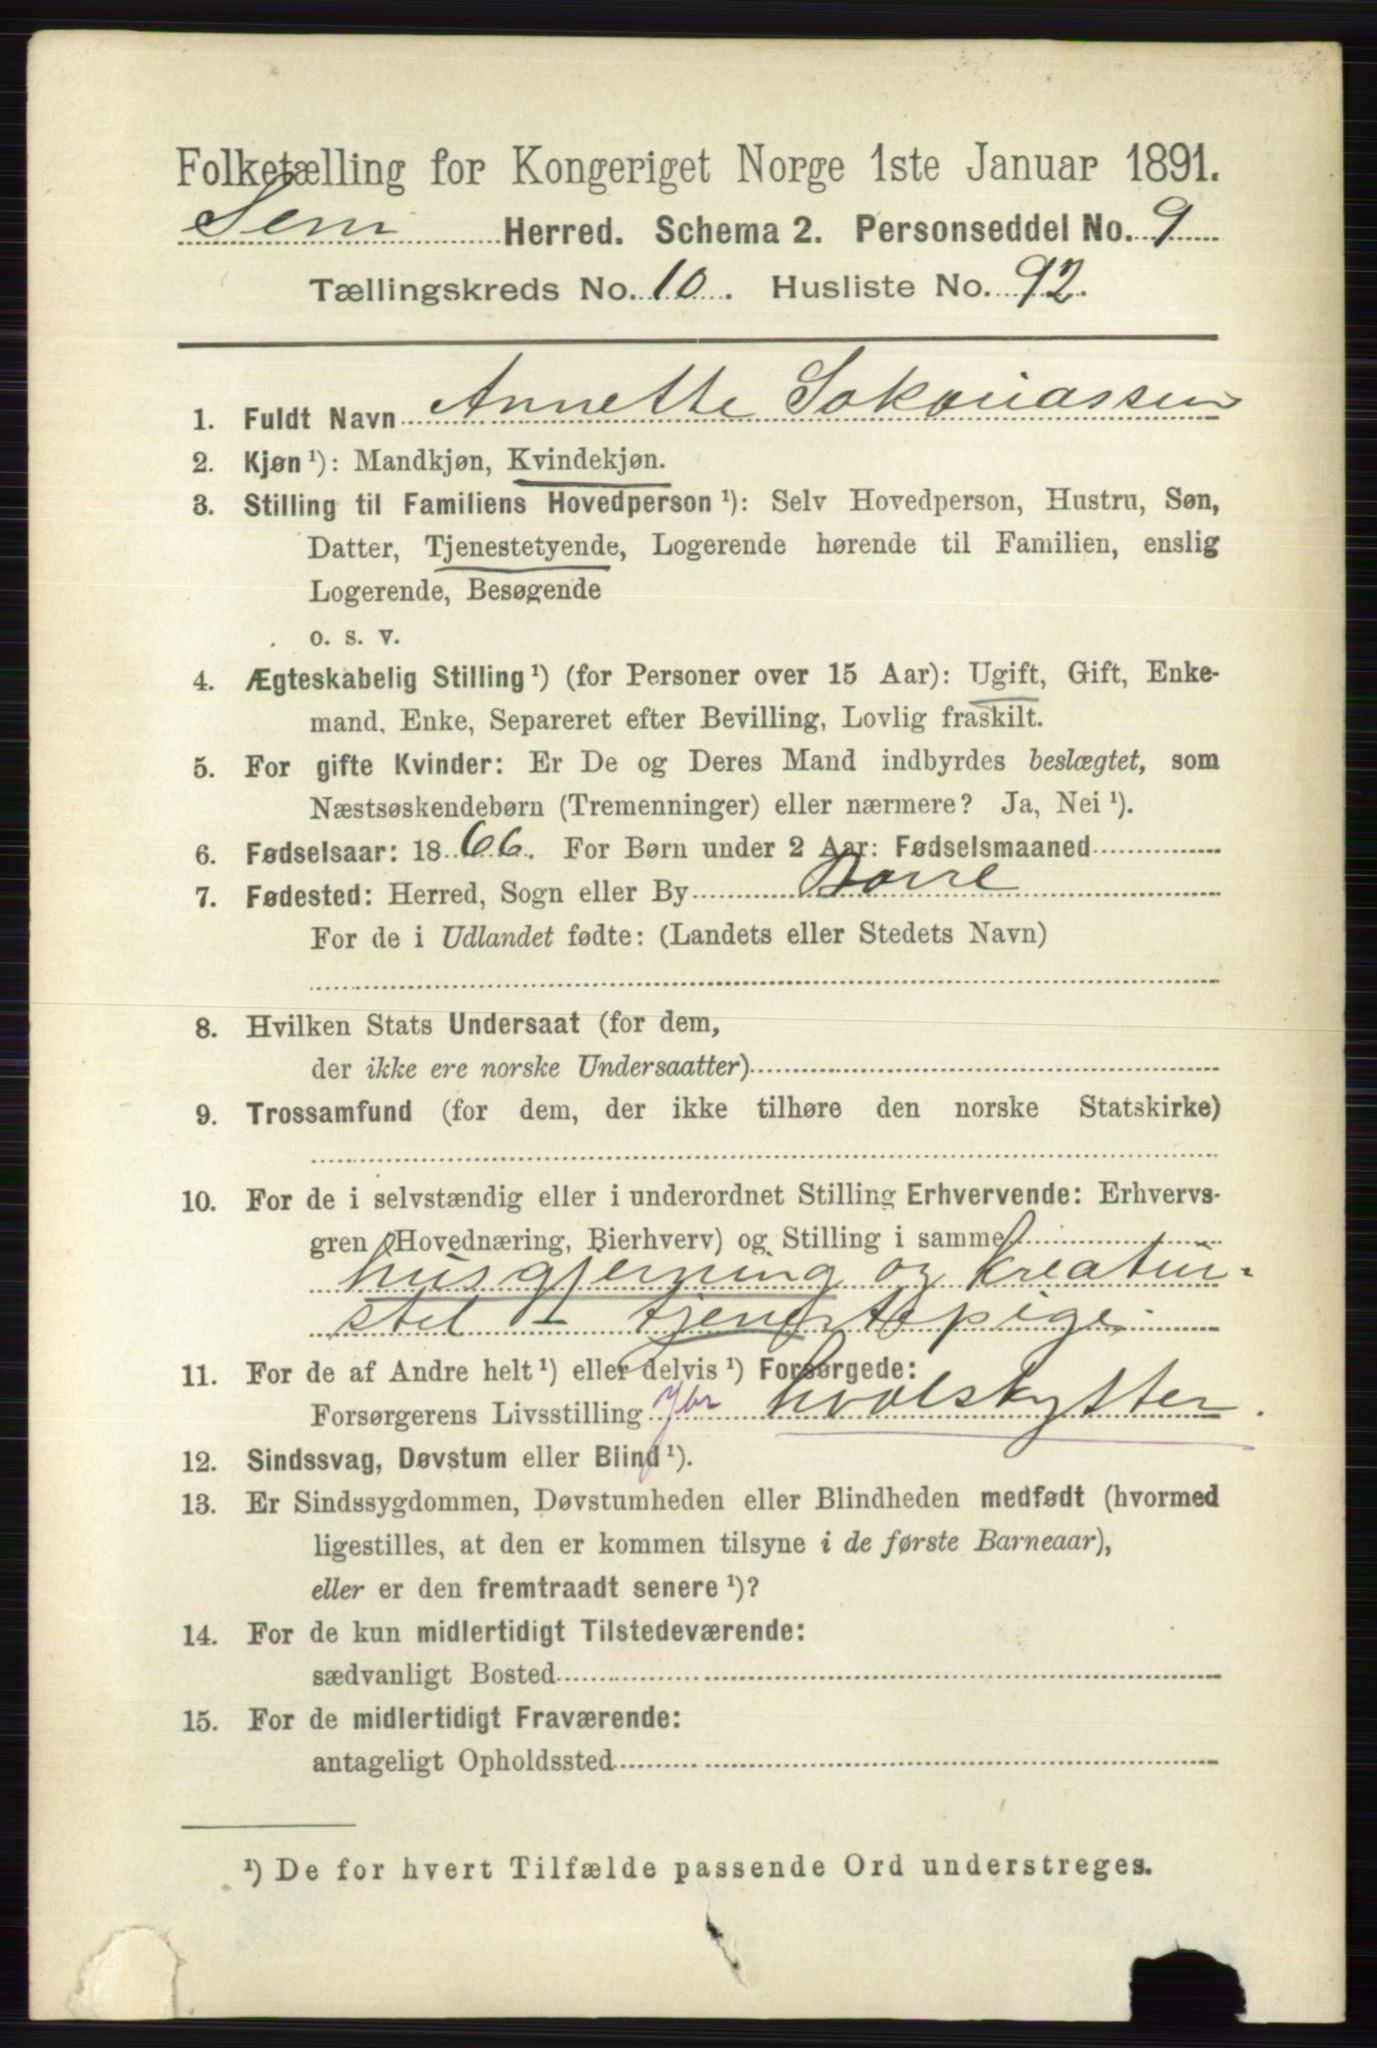 Folketælling for Kongeriget Norge 1ste Januar 1891.
Sem Herred. Schema 2. Personseddel No. 9
Tællingskreds No. 10. Husliste No. 92.
1. Fuldt Navn Annette Sakariassen
2. Kjøn ¹): Mandkjøn, Kvindekjøn.
3. Stilling til Familiens Hovedperson ¹): Selv Hovedperson, Hustru, Søn,
Datter, Tjenestetyende, Logerende hørende til Familien, enslig
Logerende, Besøgende
o. s. v.
4. Ægteskabelig Stilling ¹) (for Personer over 15 Aar): Ugift, Gift, Enke-
mand, Enke, Separeret efter Bevilling, Lovlig fraskilt.
5. For gifte Kvinder: Er De og Deres Mand indbyrdes beslægtet, som
Næstsøskendebørn (Tremenninger) eller nærmere? Ja, Nei ¹).
6. Fødselsaar: 1866. For Børn under 2 Aar: Fødselsmaaned
7. Fødested: Herred, Sogn eller By Borre
For de i Udlandet fødte: (Landets eller Stedets Navn)
8. Hvilken Stats Undersaat (for dem,
der ikke ere norske Undersaatter)
9. Trossamfund (for dem, der ikke tilhøre den norske Statskirke)
10. For de i selvstændig eller i underordnet Stilling Erhvervende: Erhvervs-
gren (Hovednæring, Bierhverv) og Stilling i samme
husgjerning og kreatur-
stel - tjenestepige
11. For de af Andre helt ¹) eller delvis ¹) Forsørgede:
Forsørgerens Livsstilling hvalskytter.
12. Sindssvag, Døvstum eller Blind ¹).
13. Er Sindssygdommen, Døvstumheden eller Blindheden medfødt (hvormed
ligestilles, at den er kommen tilsyne i de første Barneaar),
eller er den fremtraadt senere ¹)?
14. For de kun midlertidigt Tilstedeværende:
sædvanligt Bosted
15. For de midlertidigt Fraværende:
antageligt Opholdssted
¹) De for hvert Tilfælde passende Ord understreges.